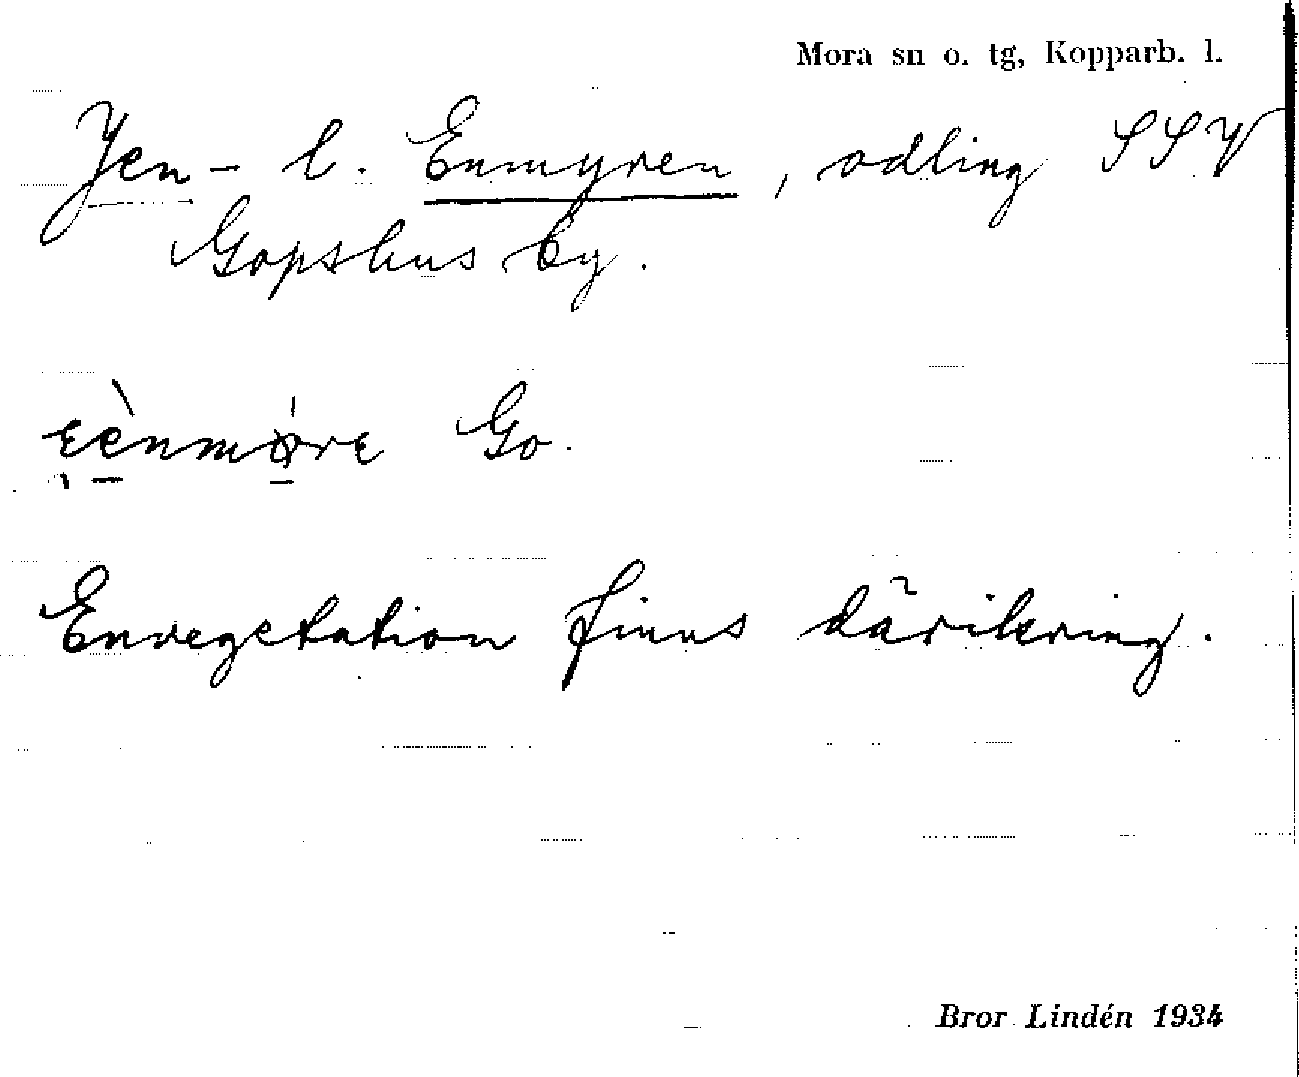 Mora sn o. tg, Kopparb. l.
Jen- l. Enmyren, odling SSV
Gopshus by.
Go.
Envegetation finns däromkring.
Bror Lindén 1934